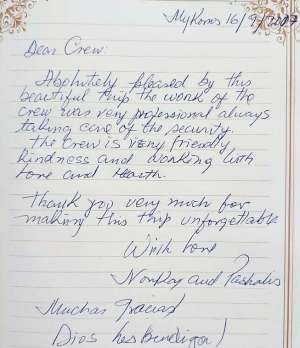 Mykonos 16/9/2017
Dear Crew:
Absolutely pleased by this
beautiful trip the work of the
crew was very professional always
taking care of the security.
The crew is very friendly
kindness and working with
love and Hearth.
Thank you very much for
making this trip unforgettable
With love
and Paskales
Muchas gracias
Dios les bendiga!